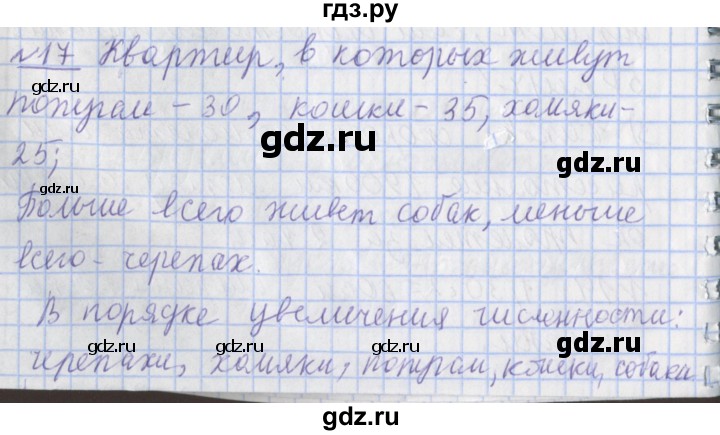 гдз.ру
№17 Квартир, в которых живут
попугаи - 30, кошки - 35, хомяки -
25;
Больше всего живет собак, меньше
всего - черепах.
В порядке увеличения численности:
черепахи, хомяки, попугаи, кошки, собаки
gdz.ru
gdz.ru
gdz.ru
gdz.ru
gdz.ru
gdz.ru
gdz.ru
gdz.ru
gdz.ru
gdz.ru
gdz.ru